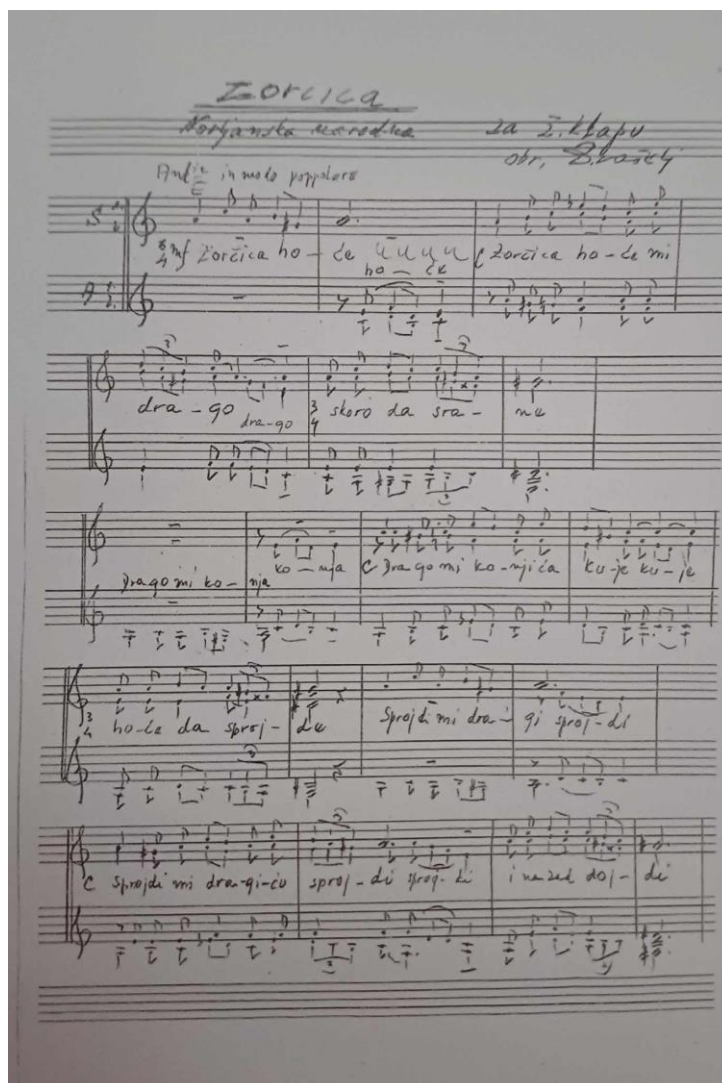 Zorčica
narodna za ž. klapu
obr.
in modo poppolare
S 1. 2.
3 4 mf Zorčica ho - će
ho - će C Zorčica ho - će mi
A 1. 2.
dra - go dra - go 3 4 skoro da sva - ne
Drago mi ko - nja ko - nja C Drago mi ko - njića ku - je ku - je
3 4 ho - će da sproj - de Sprojdi mi dra - gi sproj - di
C Sprojdi mi dra - gi - ću sproj - di sproj - di i nazad doj - di